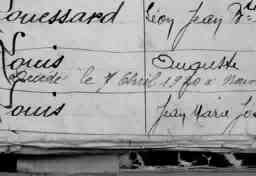 Louessard Léon Jean Bte
Louis Auguste
Décédé le 7 Avril 1920 à
Louis Jean Marie Jos